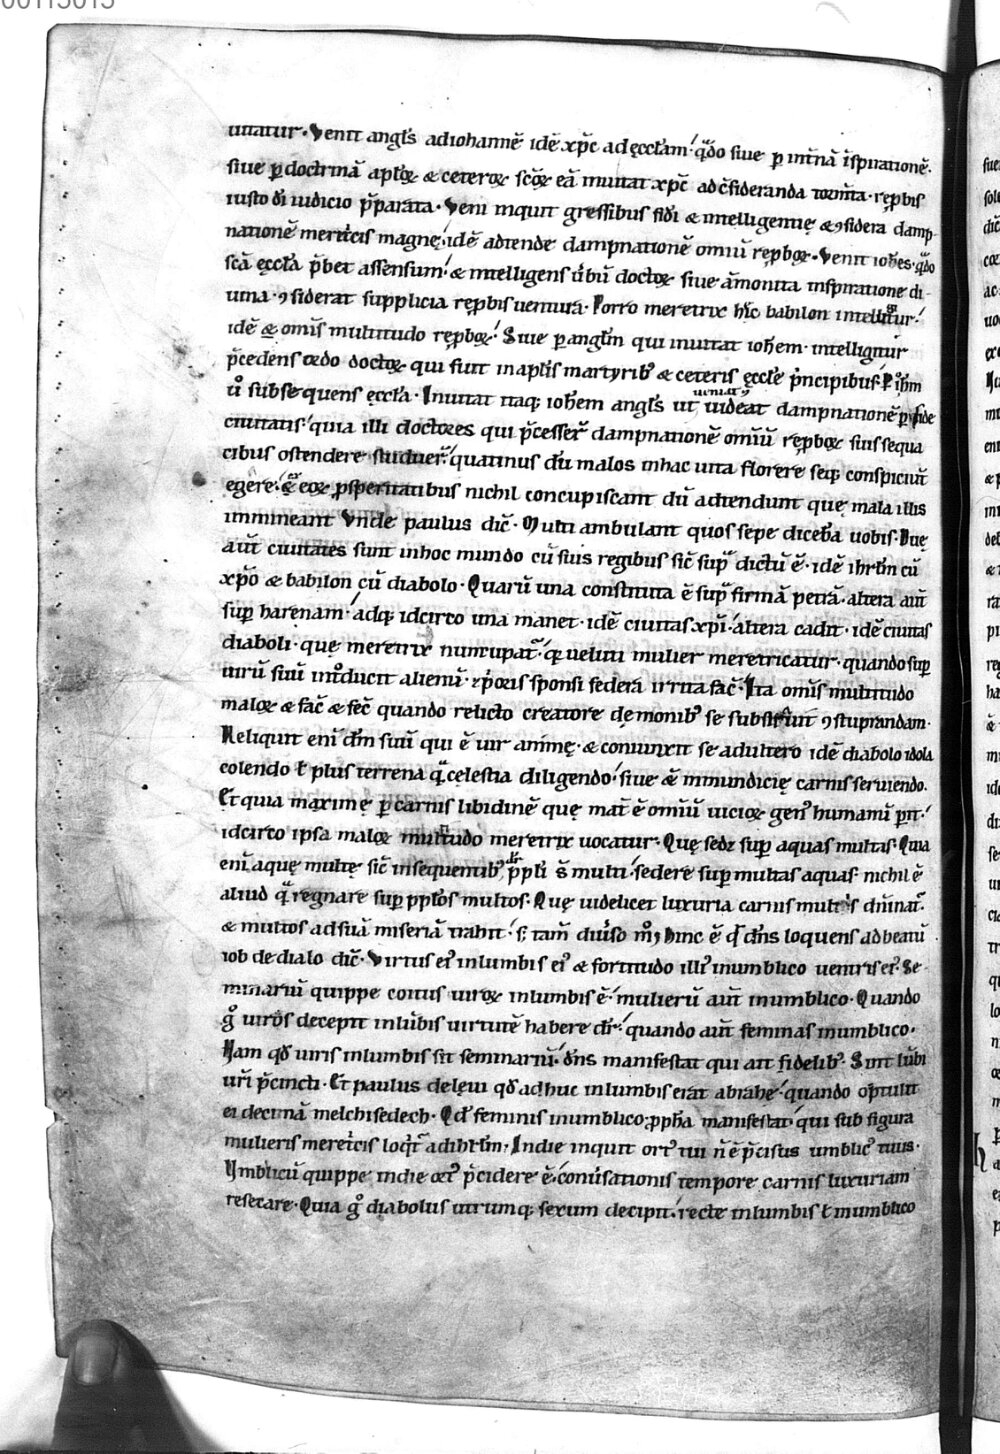 00115015
uitatur. Venit angl's ad iohannē idē xp̄c ad ęccl'am. q̄do siue p int'nā īspirationē.
siue p doctrinā aptoꝝ & ceteroꝝ sc̄oꝝ eā inuitat xp̄c ad c̄sideranda tor̄m̄ta. ręp̄bis
iusto dī iudicio p̄parata. Veni inquit gressibus fidī & intelligentię & ꝯsidera damp
nationē meret'cis magnę. idē adtende dampnationē omiū ręp̄boꝝ. Venit ioh̄es. q̄do
sc̄a ęccl'a p̄bet assensum. & intelligens ūbū doctoꝝ siue āmonita inspiratione di
uina. ꝯsiderat supplicia ręp̄bis uentura. Porro meretrix h̄ic babilon intelligitur.
idē & om̄is multitudo ręp̄boꝝ. Siue p angl̄m qui inuitat ioh̄em. intelligitur
p̄cedens ordo doctoꝝ qui fuit in aptīs martyrib; & ceteris ęccl'ę p̄ncipibus. P ioh̄m
ū subsequens ęccl'a. Inuitat itaq; ioh̄em angl's ut ueniat & uideat dampnationē p̄fide
ciuitatis. quia illi doctores qui p̄cesser̄ dampnationē omīū ręp̄boꝝ suis sequa
cibus ostendere studuer̄. quatinus dū malos in hac uita florere seq; conspiciūt
egere. & ex eoꝝ p̄speritatibus nichil concupiscant dū adtendunt quę mala illis
immineant Vnde paulus dic̄. Multi ambulant quos sepe diceb̄a uobis. Duę
aūt ciuitates sunt in hoc mundo cū suis regibus sic̄ sup̄ dictū ē. idē ihrl̄m cū
xp̄o & babilon cū diabolo. Quarū una constituta ē sup̄ firmā petrā. altera aūt
sup harenam. adq; idcirco una manet. idē ciuitas xp̄i. altera cadit. idē ciuitas
diaboli. quę meretrix nuncupat'. q̄ ueluti mulier meretricatur. quando sup
uirū suū int̊ducit alienū. & p̄oris sponsi federa irrita fac̄. Ita om̄is multitudo
maloꝝ & fac̄ & fec̄ quando relicto creatore dęmonib; se substr̄uit ꝯstuprandam.
Reliquit enī dn̄m suū qui ē uir animę. & coniunxit se adultero idē diabolo idola
colendo ł plus terrena q̄ celestia diligendo. siue & inmundicię carnis seruiendo.
Et quia maximę p carnis libidinē quę mat̄ ē omīū uicioꝝ gen' humanū pit.
idcirco ipsa maloꝝ multitudo meretrix uocatur. Quę sedz sup aquas multas. Quia
enī aquę multę sic̄ in sequentib; dr̄ pp̄li s̄t multi. sedere sup multas aquas. nichil ē
aliud q̄ regnare sup pp̄los multos. Quę uidelicet luxuria carnis multis dn̄inat'.
& multos ad suā miseriā trahit. s; tam̄ diuiso m̊. Hinc ē q̄d dn̄s loquens ad beatū
iob de dialo dic̄. Virtus ei' in lumbis ei' & fortitudo illi' in umblico uentris ei'. Se
minariū quippe coitus uiroꝝ in lumbis ē. mulierū aūt in umblico. Quando
g̊ uiros decepit in lūbis uirtutē habere dr̄. quando aūt feminas in umblico.
Nam qd̄ uiris in lumbis sit seminariū. dn̄s manifestat qui ait fidelib;. Sint lūbi
ur̄i p̄cincti. Et paulus de lęui qd̄ adhuc in lumbis erat abrahę. quando optulit
ei decimā melchisedech. Qd̄ feminis in umblico. ppħa manifestat. qui sub figura
mulieris meret'cis loq̄t' ad ihrl̄m. In die inquit ort' tui n̄ ē p̄cisus umblic' tuus.
Vmblicū quippe in die ort' p̄cidere ē. conūsationis tempore carnis luxuriam
resecare. Quia g̊ diabolus utrumq; sexum decipit. recte in lumbis ł in umblico